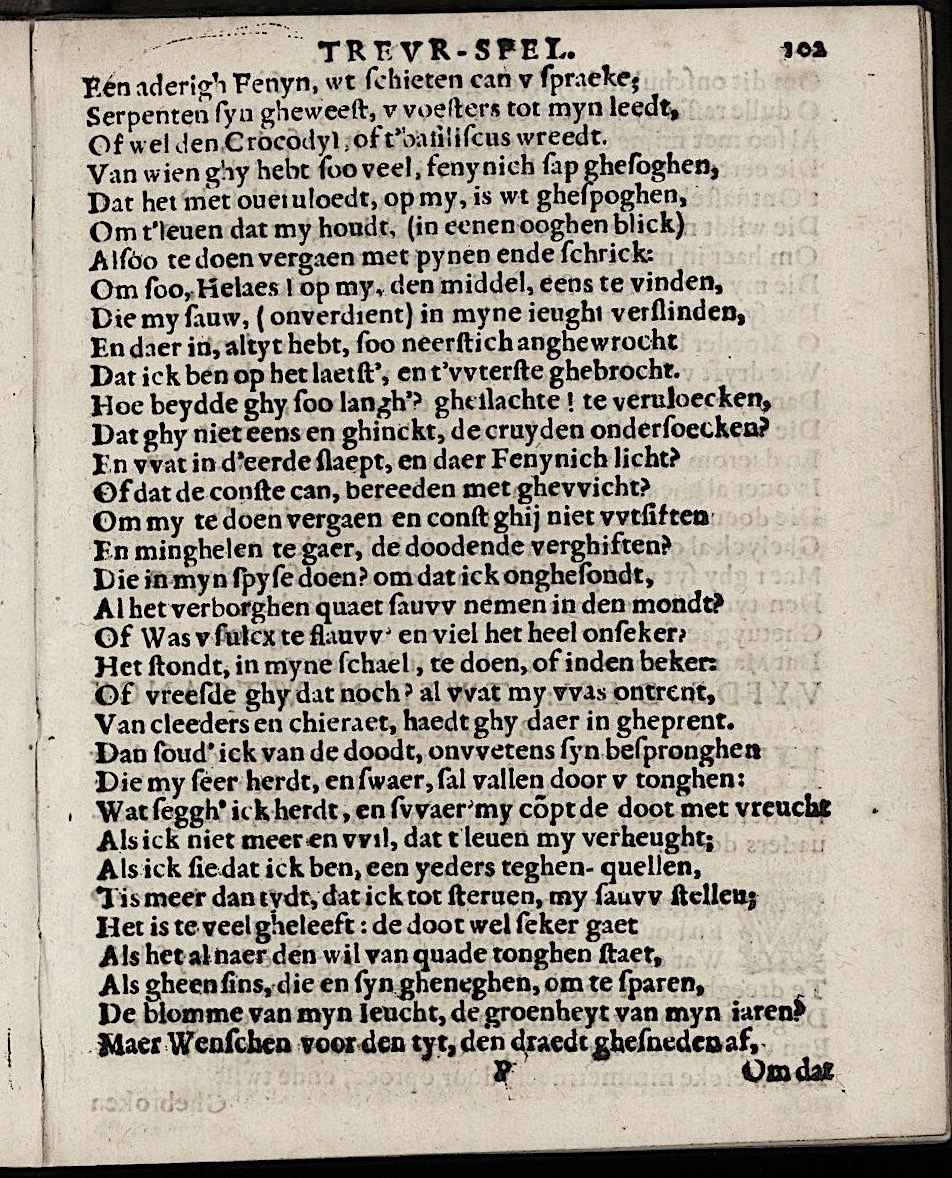 TREVR-SPEL. 102
Een aderigh Fenyn, wt ſchieten can v ſpraeke;
Serpenten ſyn gheweeſt, v voeſters tot myn leedt,
Of wel den Crocodyl, of t'baſiliſcus wreedt.
Van wien ghy hebt ſoo veel, fenynich ſap gheſoghen,
Dat het met oueruloedt, op my, is wt gheſpoghen,
Om t'leuen dat my houdt, (in eenen ooghen blick)
Alſoo te doen vergaen met pynen ende ſchrick:
Om ſoo, Helaes ! op my, den middel, eens te vinden,
Die my ſauw, ( onverdient) in myne ieught verſlinden,
En daer in, altyt hebt, ſoo neerſtich anghewrocht
Dat ick ben op het laetſt', en t'vvterſte ghebrocht.
Hoe beydde ghy ſoo langh'? gheſlachte ! te veruloecken,
Dat ghy niet eens en ghinckt, de cruyden onderſoecken?
En vvat in d'eerde ſlaept, en daer Fenynich licht?
Of dat de conſte can, bereeden met ghevvicht?
Om my te doen vergaen en conſt ghij niet vvtſiften
En minghelen te gaer, de doodende verghiften?
Die in myn ſpyſe doen? om dat ick ongheſondt,
Al het verborghen quaet ſauvv nemen in den mondt?
Of Was v ſulcx te flauvv' en viel het heel onſeker?
Het ſtondt, in myne ſchael, te doen, of inden beker:
Of vreeſde ghy dat noch? al vvat my vvas ontrent,
Van cleeders en chieraet, haedt ghy daer in gheprent.
Dan ſoud' ick van de doodt, onvvetens ſyn beſpronghen
Die my ſeer herdt, en ſwaer, ſal vallen door v tonghen:
Wat ſeggh' ick herdt, en ſvvaer' my cõpt de doot met vreucht
Als ick niet meer en vvil, dat t'leuen my verheught;
Als ick ſie dat ick ben, een yeders teghen- quellen,
Tis meer dan tydt, dat ick tot ſteruen, my ſauvv ſtellen;
Het is te veel gheleeft : de doot wel ſeker gaet
Als het al naer den wil van quade tonghen ſtaet,
Als gheenſins, die en ſyn gheneghen, om te ſparen,
De blomme van myn Ieucht, de groenheyt van myn iaren?
Maer Wenſchen voor den tyt, den draedt gheſneden af,
P Om dat